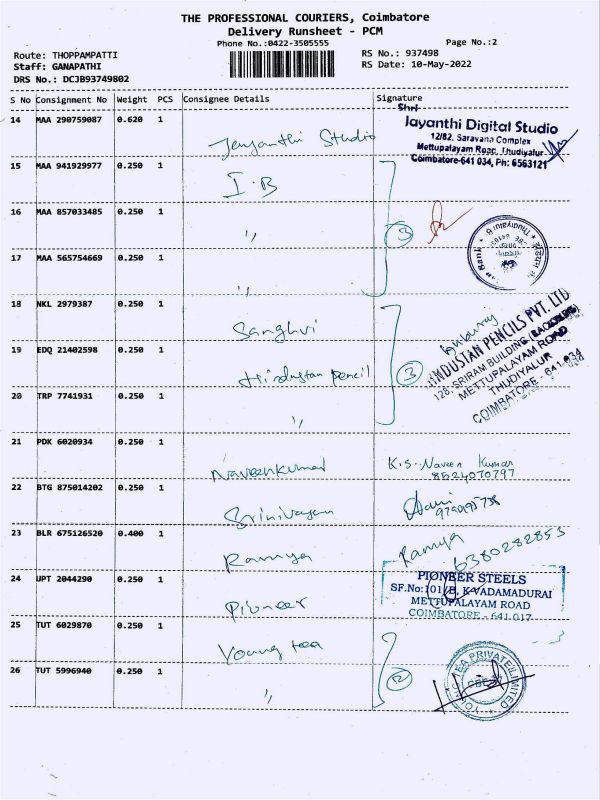 THE PROFESSIONAL COURIERS, Coimbatore
Delivery Runsheet - PCM
Phone No.:0422-3505555
Page No.:2
Route: THOPPAMPATTI
RS No.: 937498
Staff: GANAPATHI
RS Date: 10-May-2022
DRS No.: DCJB93749802
S No Consignment No Weight PCS Consignee Details Signature
14 MAA 290759087 0.620 1 Jeyanthi Studio
Shri
Jayanthi Digital Studio
12/82, Saravana Complex
Mettupalayam Road, Thudiyalur
Coimbatore-641 034, Ph: 6563121
15 MAA 941929977 0.250 1 I.B
16 MAA 857033485 0.250 1 "
3
17 MAA 565754669 0.250 1 "
18 NKL 2979387 0.250 1 Sanghvi
19 EDQ 21402598 0.250 1 Hindustan pencil
3
HINDUSTAN PENCILS PVT. LTD
128, SRIRAM BUILDING
METTUPALAYAM ROAD
THUDIYALUR
COIMBATORE - 641 034
20 TRP 7741931 0.250 1 "
21 PDK 6020934 0.250 1 Naveenkumar
K.S. Naveen Kumar
8524070797
22 BTG 875014202 0.250 1 Srinivasan
23 BLR 675126520 0.400 1 Ramya
Ramya
6380282853
24 UPT 2044290 0.250 1 Pioneer
PIONEER STEELS
SF.No:101/B, K.VADAMADURAI
METTUPALAYAM ROAD
COIMBATORE - 641 017
25 TUT 6029870 0.250 1 Young tea
2
26 TUT 5996940 0.250 1 "
TEA PRIVATE LIMITED